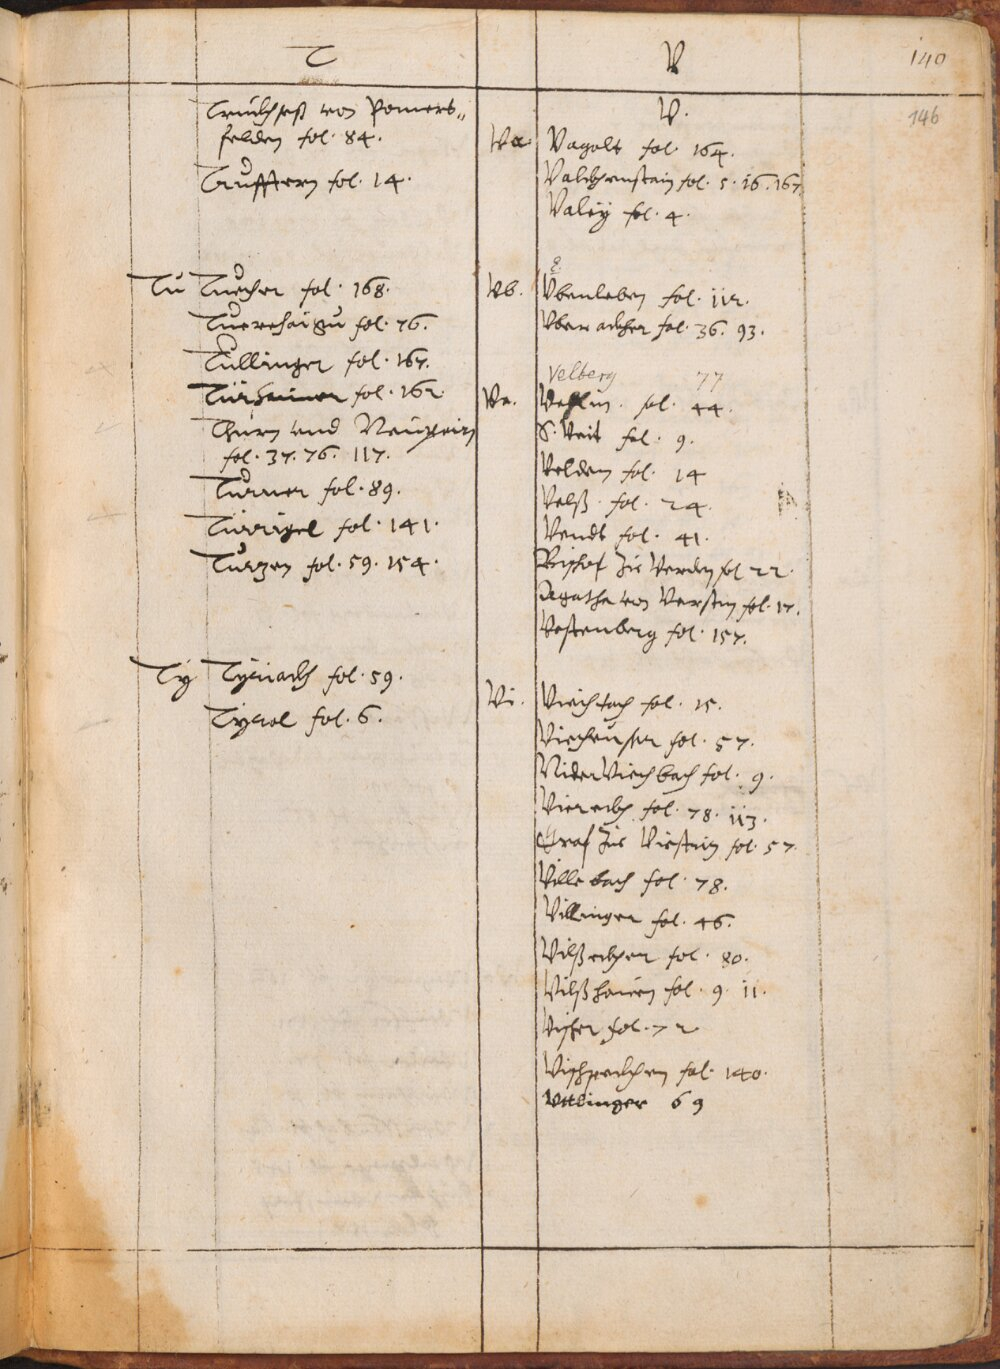 T
Truchseß von Pomers„
felden fol. 84.
Tuffftern fol. 14.
Tu Tucher fol. 168.
fol. 76.
Tullinger fol. 167.
Türhaimer fol. 162.
Thurn vnd Neupeirn
fol. 37. 76. 117.
Turner fol. 89.
Türrigel fol. 141.
Turzen fol. 59. 154.
Ty Tyrnach fol. 59.
Tyrol fol. 6.
V
140
146
V.
Va. Vagolt fol. 164.
Valchenstain fol. 5. 16. 167.
Valey fol. 4.
Vb. Vbenleben fol. 112.
Vberacher fol. 36. 93.
Velberg 77
Ve. Vehlin. fol. 44.
S. Veit fol. 9.
Velden fol. 14
Velß. fol. 24.
Vendt fol. 41.
Bischof zu Verden fol 22.
Agatha von fol. 17.
Vestenberg fol. 157.
Vi. Viechtach fol. 15.
Viehauser fol. 57.
Nider Viechbach fol. 9.
Viereckh fol. 78. 113.
Graf zu fol. 57.
Villebach fol. 78.
Villinger fol. 46.
Vilßeckher fol. 80.
Vilßhouen fol. 9. 11.
Vischer fol. 72
Vischpeckhen fol. 140.
Vttlinger 69